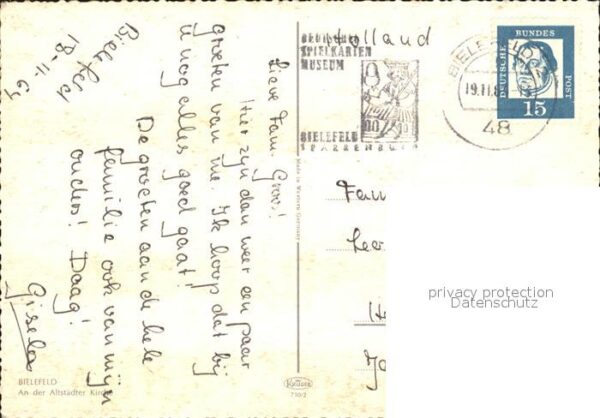 Bielefeld
18-11-64
Lieve Fam. Groo!
Hier zyn dan weer een paar
groeten van me. Ik hoop dat bij
u nog alles goed gaat!
De groeten aan de hele
familie ook van mijn
ouders! Daag!
Gisela
BIELEFELD
An der Altstädter Kirche
Made in Western Germany
KRÜGER
710/2
Holland
DEUTSCHES
SPIELKARTEN
MUSEUM
BIELEFELD
SPARRENBURG
BIELEFELD
19.11.6
48
DEUTSCHE BUNDES POST
15
Fam
Lee
privacy protection
Datenschutz